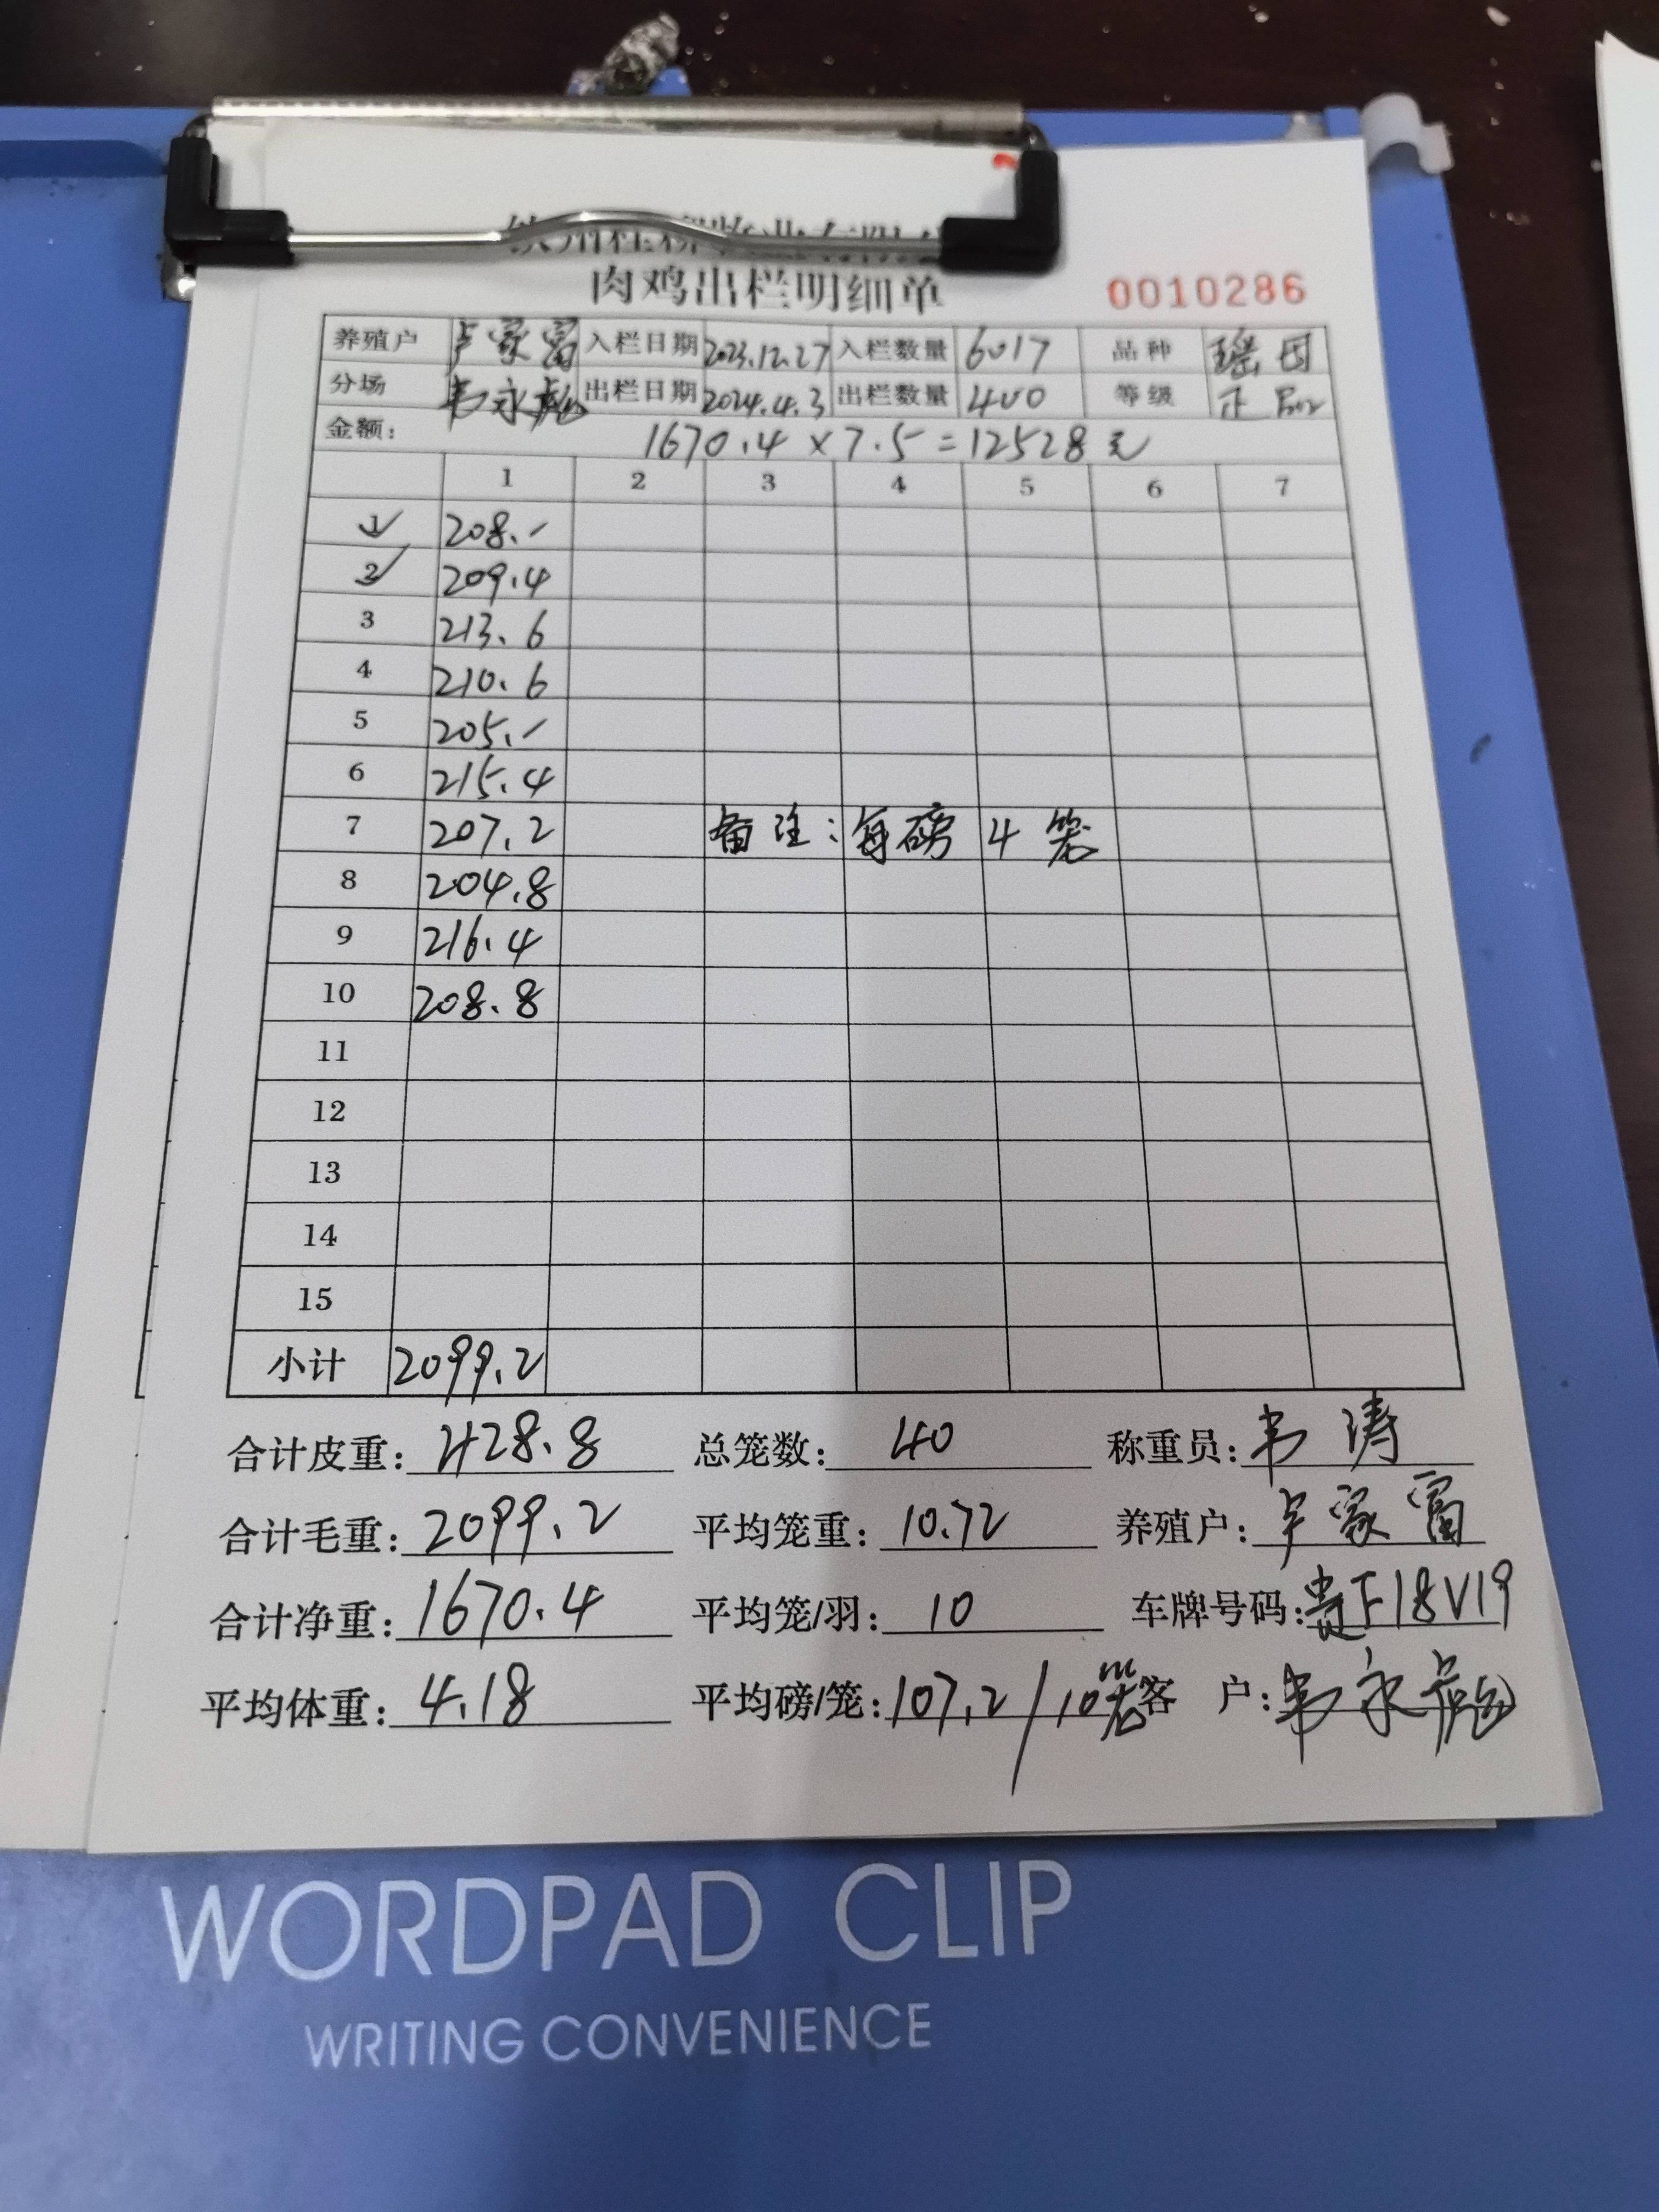 肉鸡出栏明细单 0010286
养殖户 卢家富 入栏日期 2023.12.27 入栏数量 6017 品种 瑶
分场 韦永彪 出栏日期 2024.4.3 出栏数量 400 等级 正
金额: 1670.4×7.5=12528元
1 2 3 4 5 6 7
1 208.-
2 209.4
3 213.6
4 210.6
5 205.-
6 215.4
7 207.2 备注:每磅4笼
8 204.8
9 216.4
10 208.8
11
12
13
14
15
小计 2099.2
合计皮重: 428.8 总笼数: 40 称重员: 韦涛
合计毛重: 2099.2 平均笼重: 10.72 养殖户: 卢家富
合计净重: 1670.4 平均笼/羽: 10 车牌号码: 贵F18V19
平均体重: 4.18 平均磅/笼: 107.2/10笼 客户: 韦永彪
WORDPAD CLIP
WRITING CONVENIENCE